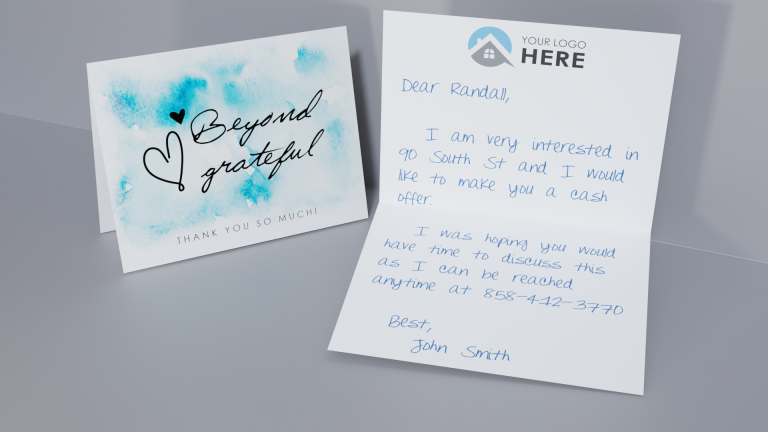 Beyond
grateful
THANK YOU SO MUCH!
YOUR LOGO
HERE
Dear Randall,
I am very interested in
90 South St and I would
like to make you a cash
offer.
I was hoping you would
have time to discuss this
as I can be reached
anytime at 858-412-3770
Best,
John Smith